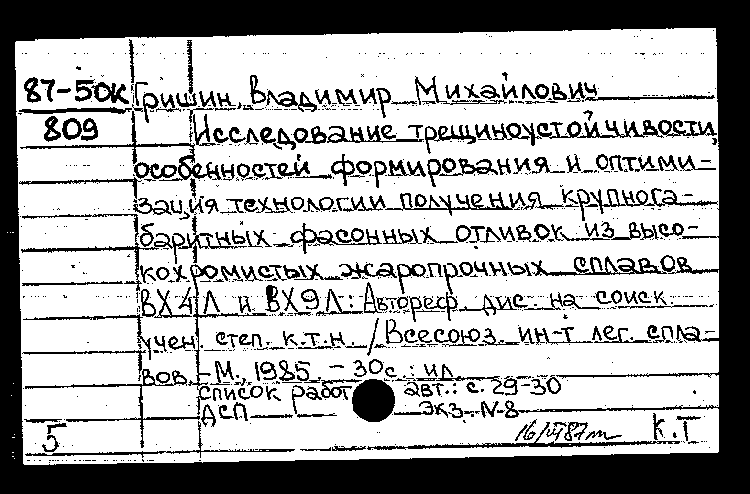 87-50к Гришин, Владимир Михайлович
809 Исследование трещиноустойчивости,
особенностей формирования и оптими-
зация технологии получения крупнога-
баритных фасонных отливок из высо-
кохромистых жаропрочных сплавов
ВХ4Л и ВХ9Л: Автореф. дис. на соиск.
учен. степ. к.т.н. / Всесоюз. ин-т лег. спла-
вов. - М., 1985. - 30с.: ил.
Список работ авт.: с. 29-30
ДСП Экз. N-8
5 К.Т